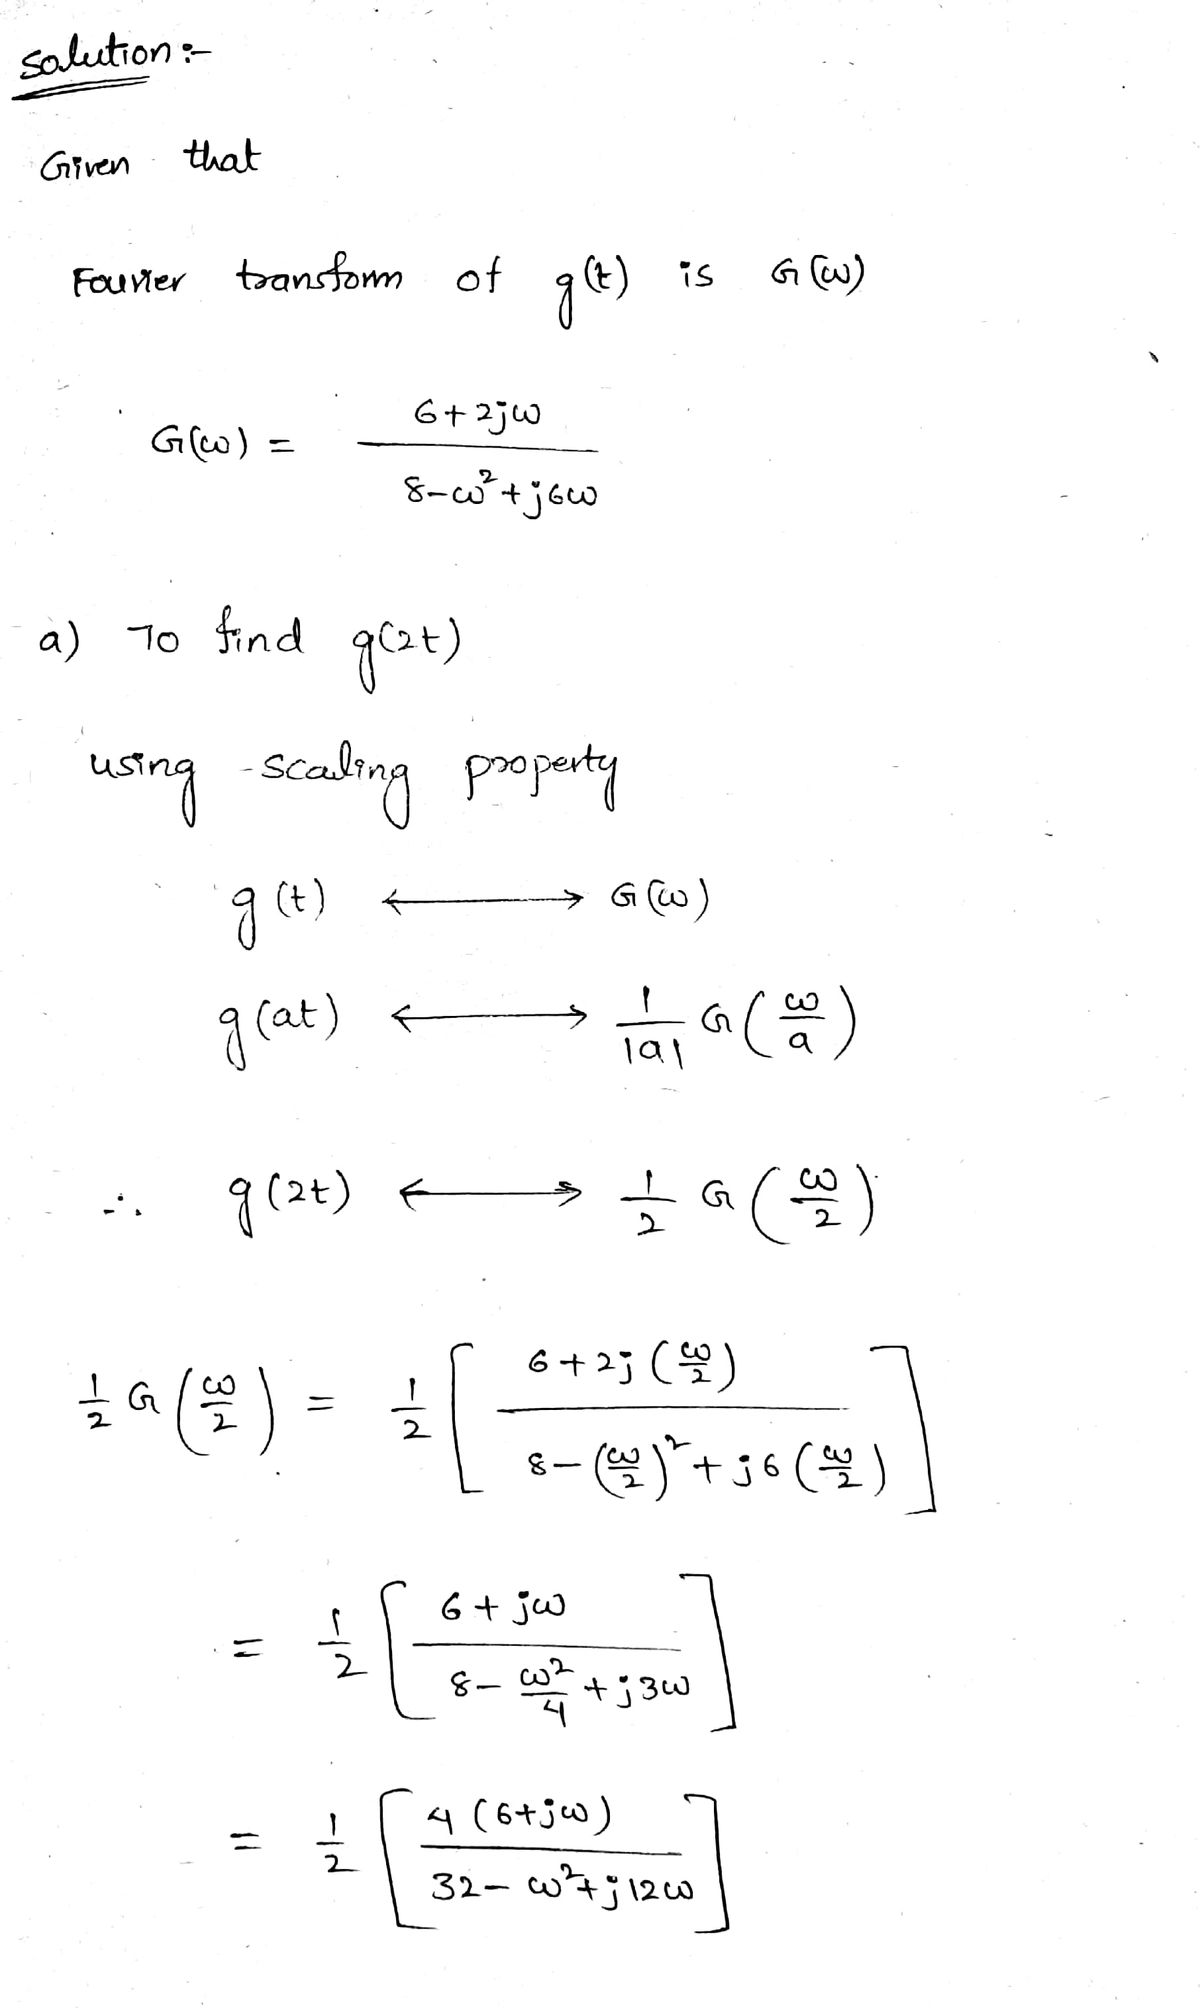 Solution :-
Given that
Fourier transform of g(t) is G(ω)
G(ω) = (6+2jω)/(8-ω²+j6ω)
a) To find g(2t)
using scaling property
g(t) ⟷ G(ω)
g(at) ⟷ 1/|a| G(ω/a)
∴ g(2t) ⟷ 1/2 G(ω/2)
1/2 G(ω/2) = 1/2 [(6+2j(ω/2))/(8-(ω/2)²+j6(ω/2))]
= 1/2 [(6+jω)/(8-ω²/4+j3ω)]
= 1/2 [4(6+jω)/(32-ω²+j12ω)]